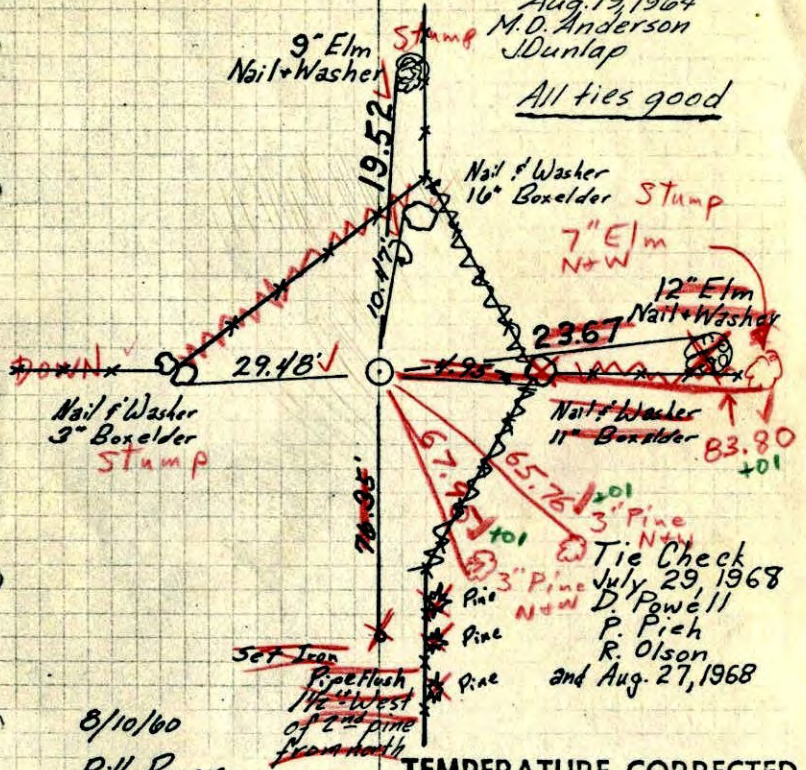 Aug. 19, 1964
M.D. Anderson
J Dunlap
All ties good
Stump
9" Elm
Nail + Washer
19.52
Nail & Washer
16" Boxelder
Stump
7" Elm
N+W
12" Elm
Nail + Washer
10.47'
23.67
DOWN
29.48'
4.95
Nail & Washer
3" Boxelder
Stump
Nail & Washer
11" Boxelder
83.80
+01
65.76
+01
+01
3" Pine
N+W
3" Pine
N+W
Tie Check
July 29, 1968
D. Powell
P. Pieh
R. Olson
and Aug. 27, 1968
Pine
Pine
Pine
Set Iron
Pipe flush
1½" West
of 2nd pine
from north
8/10/60
TEMPERATURE CORRECTED